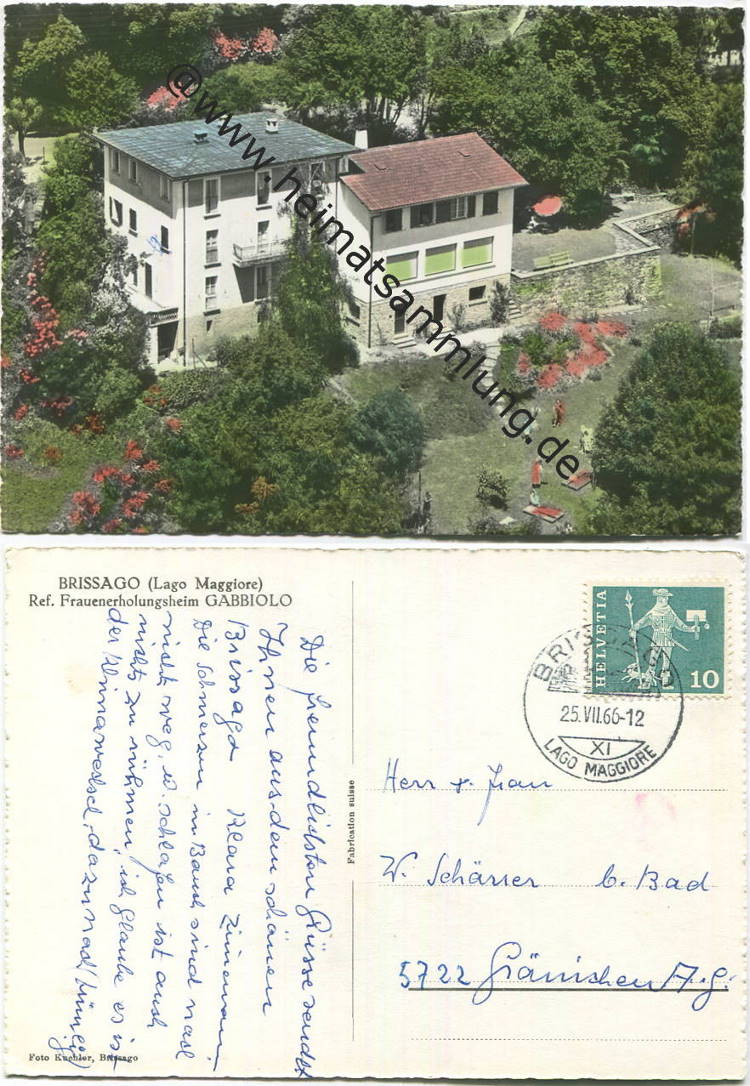 @www.heimatsammlung.de
BRISSAGO (Lago Maggiore)
Ref. Frauenerholungsheim GABBIOLO
Die freundlichsten Grüsse sendet
Ihnen aus dem schönen
Brissago Klara Zimmermann
Die Schmerzen im Bauch sind noch
nicht weg, u. schlafen ist auch
nichts zu rühmen, ich glaube es ist
der Klimawechsel, dazu noch
Fabrication suisse
Foto Kuehler, Brissago
HELVETIA
10
BRISSAGO
25.VII.66-12
XI
LAGO MAGGIORE
Herr + Frau
W. Schärrer b. Bad
5722 Gränichen Ag.